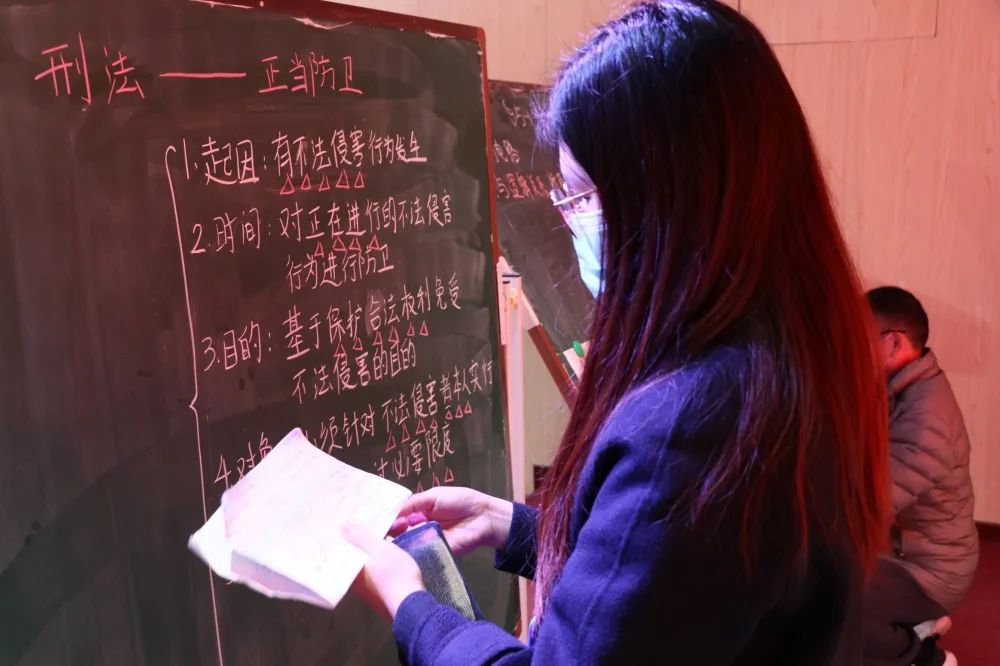 刑法——正当防卫
1. 起因：有不法侵害行为发生
2. 时间：对正在进行的不法侵害
行为进行防卫
3. 目的：基于保护合法权利免受
不法侵害的目的
4. 对象 须针对不法侵害者本人实行
必要限度